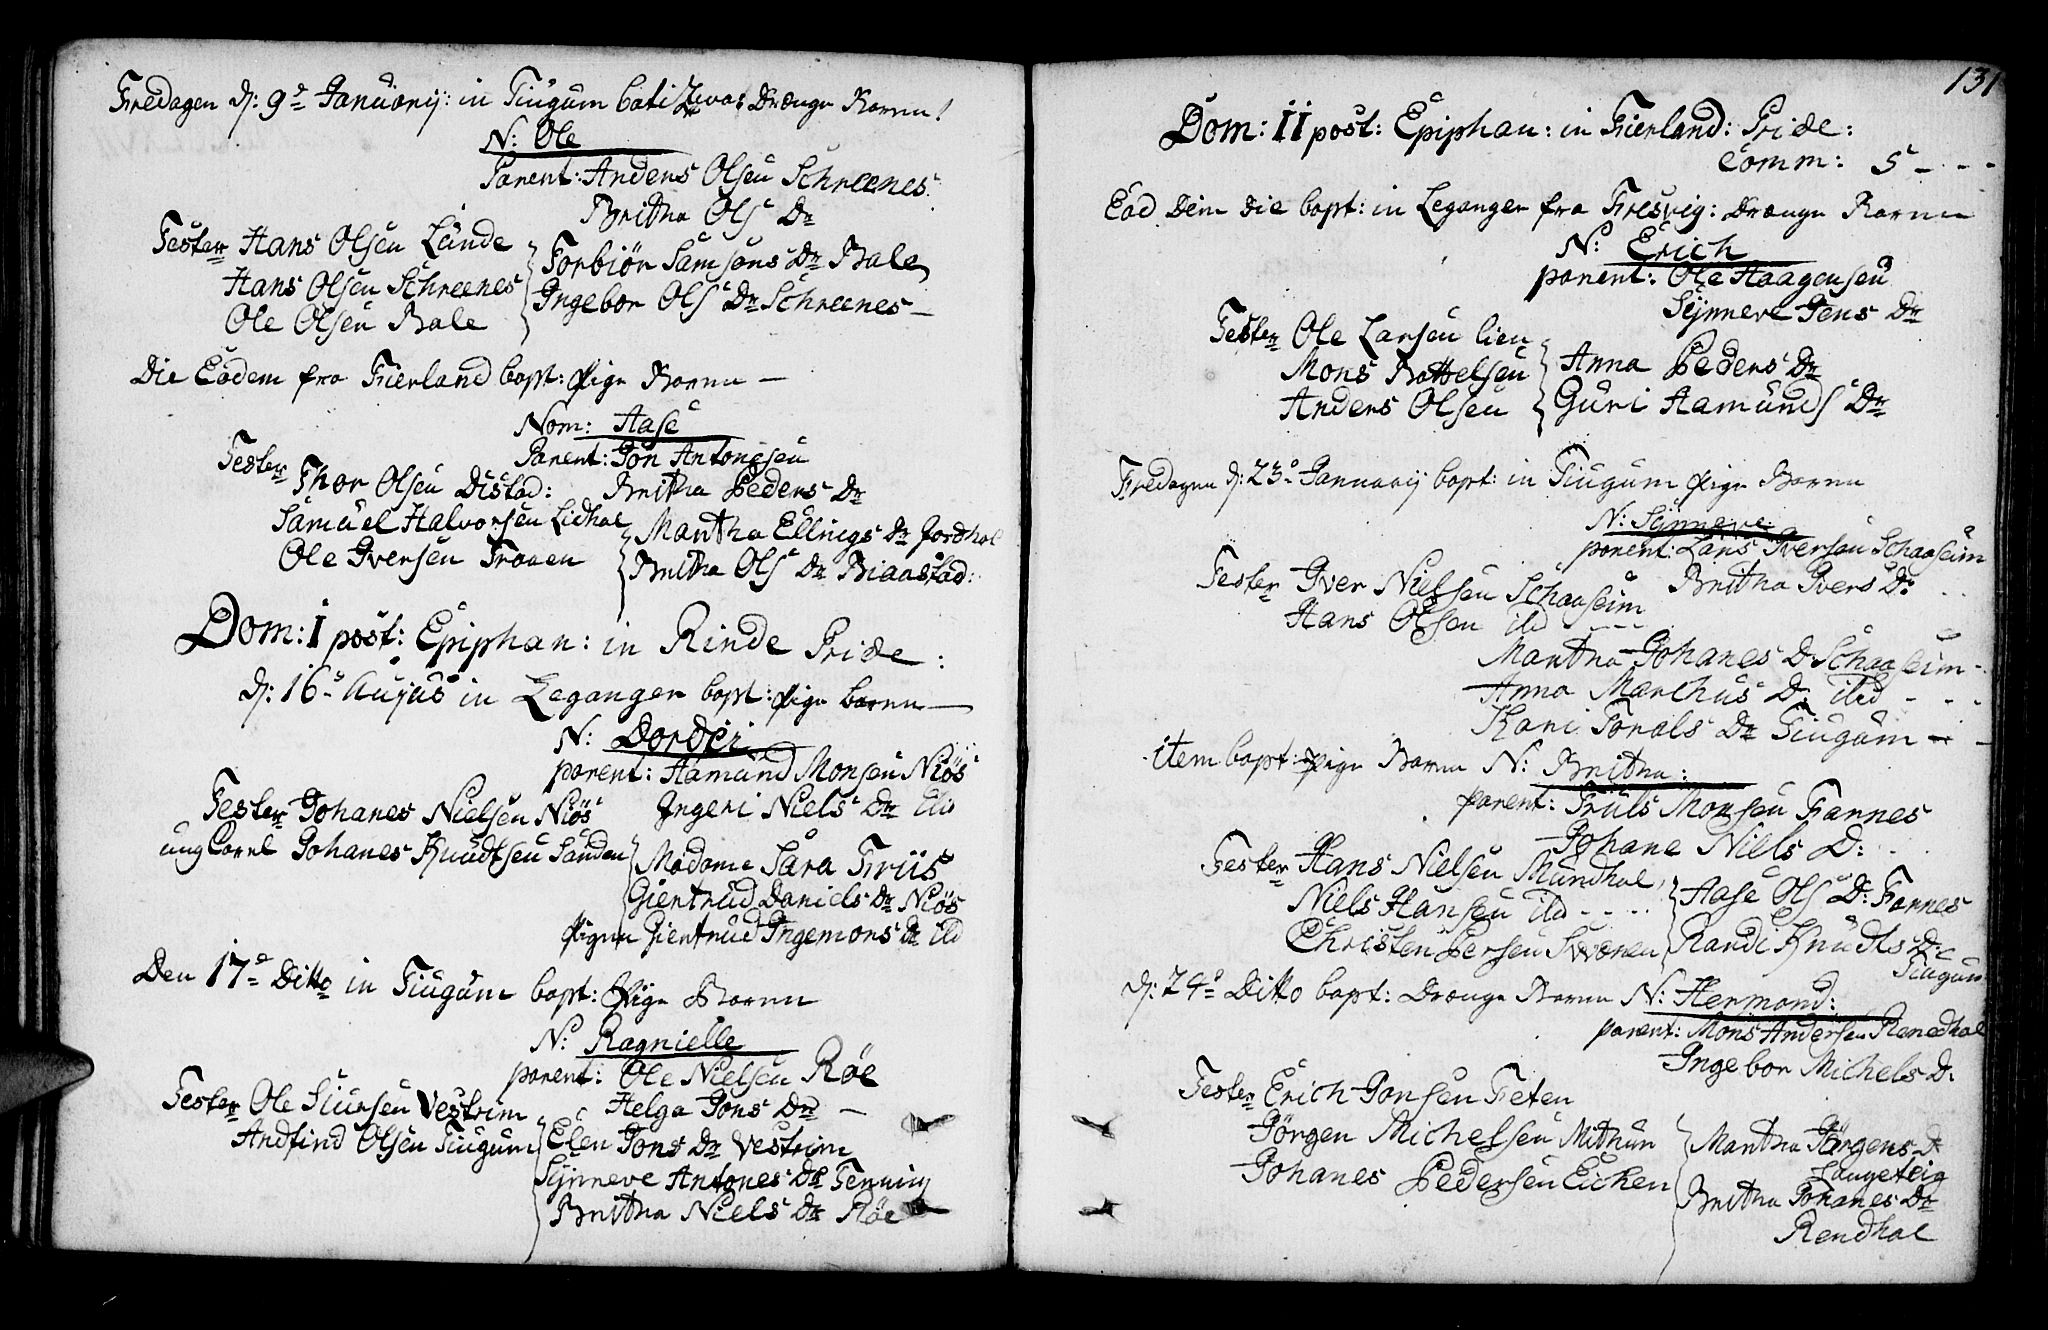 Fredagen d: 9de Januarij: in Tiugum batizeras Drænge Barnn!
N: Ole
Parent: Anders Olsen Schreenes
Britha Ols Dr
Tester Hans Olsen Lunde
Hans Olsen Schreenes
Ole Olsen Bale
Torbiør Samsons Dr Bale
Ingebor Ols Dr Schreenes
Die Eodem fra Fierland bapt: Pige Barnn
Nom: Aase
Parent: Jon Antonesen
Britha Peders Dr
Tester Thor Olsen Distad:
Samuel Halvorsen Lidhal
Ole Iversen Troaen
Martha Ellings Dr Jordhal
Britha Ols Dr Biaastad:
Dom: I post: Epiphan: in Rinde Pride:
d: 16de in Leganger bapt: Pige barnn
N: Dordei
parent: Aamund Monsen Niøs
Ingeri Niels Dr ibd
Tester Johanes Nielsen Niøs
ung Carel Johanes Knudtsen Sanden
Madame Sara Friis
Giertrud Daniels Dr Niøs
Pigen Giertrud Ingemons Dr ibd
Den 17de Ditto in Tiugum bapt: Pige Barnn
N: Ragnielle
parent: Ole Nielsen Røe
Helga Jons Dr
Tester Ole Siursen Vestrim
Andfind Olsen Tiugum
Elen Jons Dr Vestrim
Synneve Antones Dr Ferning
Britha Niels Dr Røe
131
Dom: II post: Epiphan: in Fierland: Pride:
Comm: 5
Eod Dem Die bapt: in Leganger fra Fresvig: Drænge Barnn
N: Erich
parent: Ole Haagensen
Synneve Jens Dr
Tester Ole Larsen lien
Mons Bottelsen
Anders Olsen
Anna Peders Dr
Guri Aamunds Dr
Fredagen d: 23de Januarij bapt: in Tiugum Pige Barnn
N: Synneve
parent: Lars Iversen Schaaseim
Britha Ivers D:
Tester Iver Nielsen Schaaseim
Hans Olsen ibd
Martha Johanes D: Schaaseim
Anna Marchus D: ibid
Kari Torals Dr Tiugum
item bapt: Pige Barnn N: Britha:
parent: Truls Monsen Farnes
Johane Niels D:
Tester Hans Nielsen Mundhal
Niels Hansen ibd
Christen Persen Sværen
Aase Ols D: Farnes
Randi Knudts D:
Tiugum
d: 24de Ditto bapt: Drænge Barnn N: Hermond:
parent: Mons Andersen Ranedhal
Ingebor Michels D:
Tester Erich Jonsen Feten
Jørgen Michelsen Mithun
Johanes Pedersen Eichen
Martha Jørgens D
Langeteig
Britha Johanes Dr
Rendhal